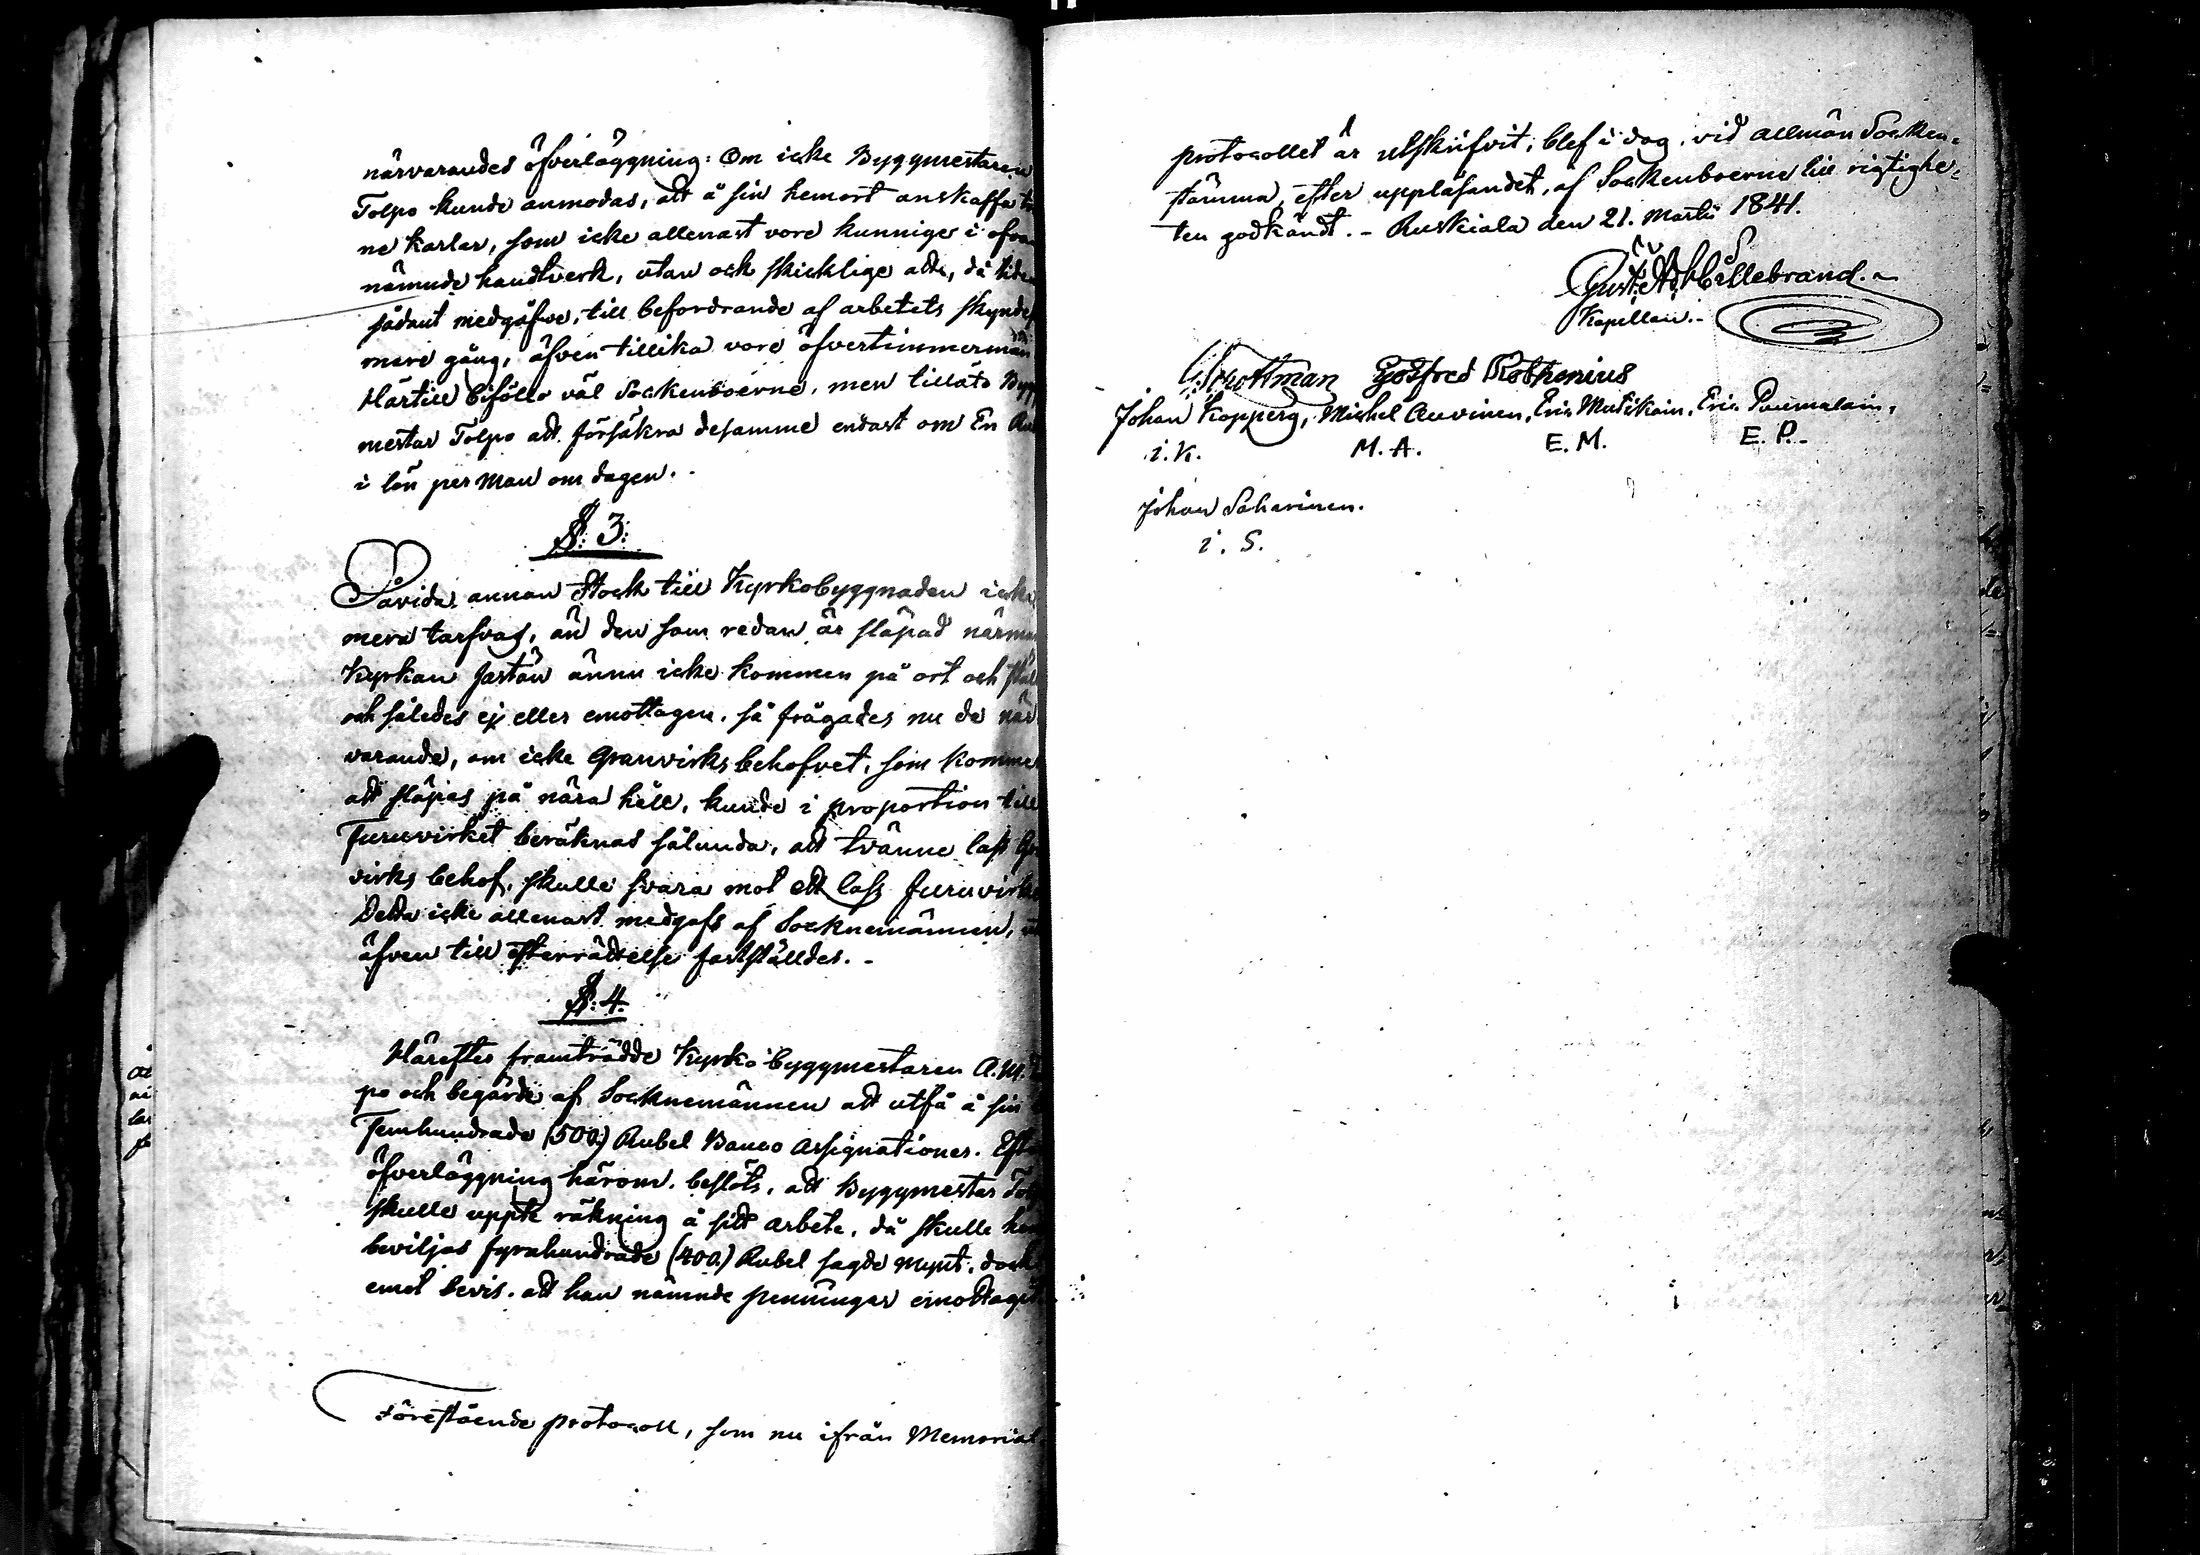 närvarandes öfverläggning: Om icke Byggmestaren
Tolpo kunde anmodas, att å sin hemort anskaffa
ne karlar, som icke allenast vore kunnige i ofva
nämnde handtverk, utan ock skicklige att, då tide
sådant medgåfve, till befordrande af arbetets skynde
mare gång, äfven tillika vore öfvertimmermän
Härtill biföllo väl Sockenboerne, men tilläto Byg
mestar Tolpo att försäkra desamme endast om En Ru
i lön per Man om dagen.
§: 3:
Såvida annan Stock till Kyrkobyggnaden icke
mera tarfvas, än den som redan är släpad närma
Kyrkan fastän ännu icke kommen på ort och ställ
och således ej eller emottagen, så frågades nu de när
varande, om icke Granvirks behofvet, som komme
att släpas på nära håll, kunde i proportion till
Furuvirket beräknas sålunda, att tvänne lass Gr
virks behof, skulle svara mot ett lass furuvirke
Detta icke allenast medgafs af Socknemännen, ut
äfven till efterrättelse fastställdes. -
§: 4.
Härefter framträdde Kyrko byggmestaren A. M. T
po och begärde af Socknemännen att utfå å sin
Femhundrade (500.) Rubel Banco Assignationer. Eft
öfverläggning härom, beslöts, att Byggmestar Tol
skulle uppte räkning å sitt arbete, då skulle ho
beviljas fyrahundrade (400.) Rubel sagde mynt, dock
emot bevis, att han nämnde penningar emottagit.
Förestående protocoll, som nu ifrån Memorial
protocollet är utskrifvit, blef i dag, vid allmän Socken-
stämma, efter uppläsandet, af Sockenboerne till rigtighe-
ten godkändt. - Ruskiala den 21. Martii 1841.
Gust: Ad: Hillebrand. -
Kapellan. -
Gotfred Rothonius
Johan Kopperg, Michel Auvinen, Eric Mutikain, Eric Puumalain,
i. K. M. A. E. M. E. P. -
Johan Saharinen.
i. S.